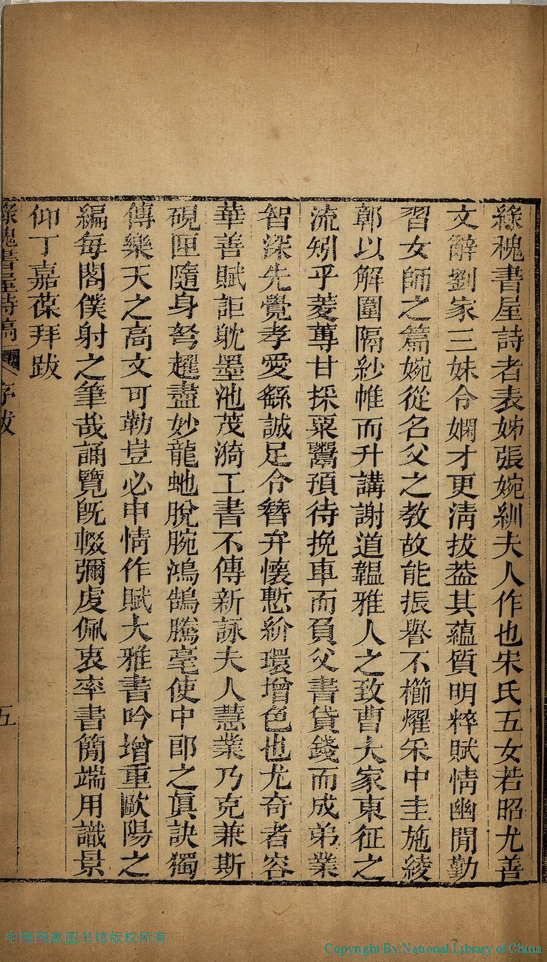 綠槐書屋詩者表姊張婉紃夫人作也宋氏五女若昭尤善
文辭劉家三妹令嫻才更淸拔葢其蘊質明粹賦情幽閒勤
習女師之篇婉從名父之教故能振譽不櫛燿采中圭施綾
鄣以解圍隔紗帷而升講謝道韞雅人之致曹大家東征之
流矧乎菱蓴甘採粟鬻預待挽車而負父書貸錢而成弟業
智深先覺孝愛繇誠足令簪弁懷慙紛環增色也尤奇者容
華善賦詎躭墨池茂漪工書不傳新詠夫人慧業乃克兼斯
硯匣隨身弩趯盡妙龍虵脫腕鴻鵠騰毫使中郎之眞訣獨
傳樂天之高文可勒豈必申情作賦大雅書吟增重歐陽之
編每閣僕射之筆哉誦覽旣輟彌虔佩衷率書簡端用識景
仰丁嘉葆拜跋
綠槐書屋詩稿 序跋 五
中國國家图书馆版权所有
Copyright By National Library of China